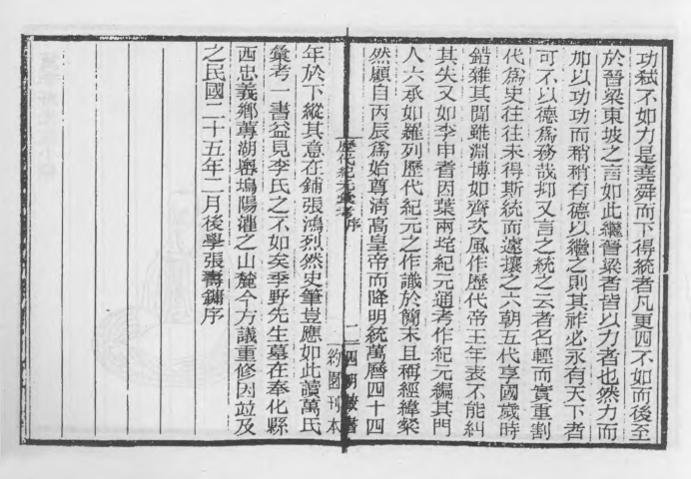 功弒不如力是堯舜而下得統者凡更四不如而後至
於晉梁東坡之言如此繼晉梁者皆以力者也然力而
加以功功而稍稍有德以繼之則其祚必永有天下者
可不以德爲務哉抑又言之統之云者名輕而實重割
代爲史往往未得斯統而遽攘之六朝五代享國歲時
錯雜其間雖淵博如齊次風作歷代帝王年表不能糾
其失又如李申耆因葉兩垞紀元通考作紀元編其門
人六承如羅列歷代紀元之作識於簡末且稱經緯粲
然顧自丙辰爲始尊清高皇帝而降明統萬曆四十四
歷代紀元彙考序
二
四明叢書
約園刊本
年於下縱其意在鋪張鴻烈然史筆豈應如此讀萬氏
彙考一書益見李氏之不如矣季野先生墓在奉化縣
西忠義鄉蓴湖嶴塢陽灌之山麓今方議重修因竝及
之民國二十五年二月後學張壽鏞序